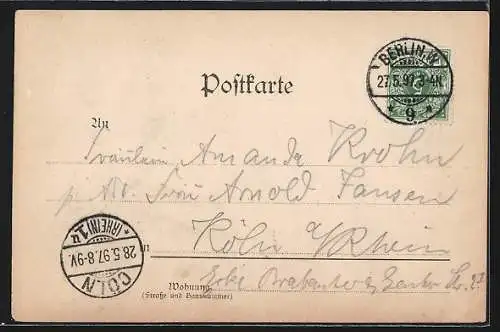 Postkarte
BERLIN.W.
27.5.97.3-4N.
* 9 *
An
Fräulein Amanda Krohn
Frau Arnold Jansen
in Köln a/Rhein
Ecke Brabanter
Wohnung
(Straße und Hausnummer)
CÖLN
28.5.97.8-9V.
* (RHEIN) 1u